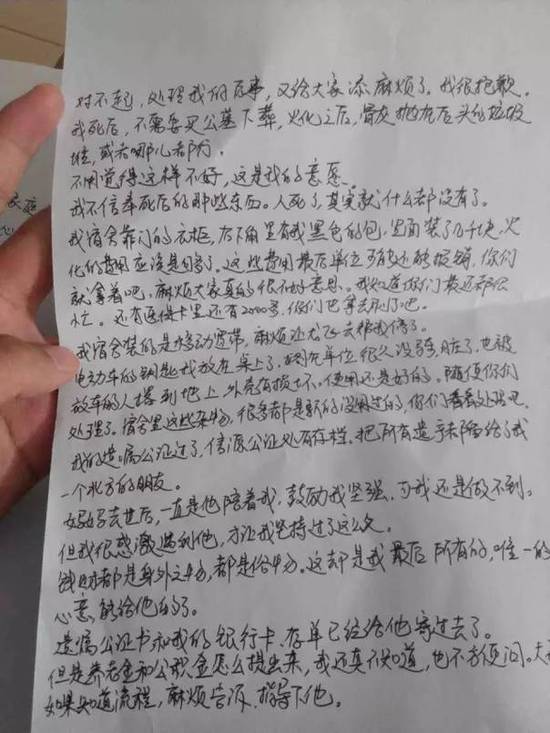 对不起，处理我的后事，又给大家添麻烦了。我很抱歉。
我死后，不需要买公墓下葬，火化之后，骨灰抛在后头的垃圾
堆，或者哪儿都行。
不用觉得这样不好，这是我的意愿。
我不信奉死后的那些东西。人死了，其实就什么都没有了。
我宿舍靠门的衣柜，后下角里有我黑色的包，里面装了几千块，火
化的费用应该是够了。这些费用最后单位可能还能报销，你们
就拿着吧，麻烦大家真的很不好意思。我知道你们最近都很
忙。还有医保卡里还有2000多，你们也拿去用了吧。
我宿舍装的是移动宽带，麻烦让龙飞去帮我停了。
电动车的钥匙我放在桌上了，车在单位很久没骑，脏了，也被
放车的人撂到地上，外壳有损坏。使用还是好的。随便你们
处理了。宿舍里这些杂物，很多都是新的没用过的，你们看着处理吧。
我的遗嘱公证过了，信源公证处有存档。把所有遗产都留给了我
一个北方的朋友。
妈妈去世后，一直是他陪着我，鼓励我坚强，可我还是做不到。
但我很感激遇到他，才让我坚持过了这么久。
钱财都是身外之物，都是俗物。这却是我最后所有的，唯一的
心意，能给他的了。
遗嘱公证书和我的银行卡、存单已经给他寄过去了。
但是养老金和公积金怎么提出来，我还真不知道，也不方便问。大
如果知道流程，麻烦告诉、指导下他。
衣柜
心